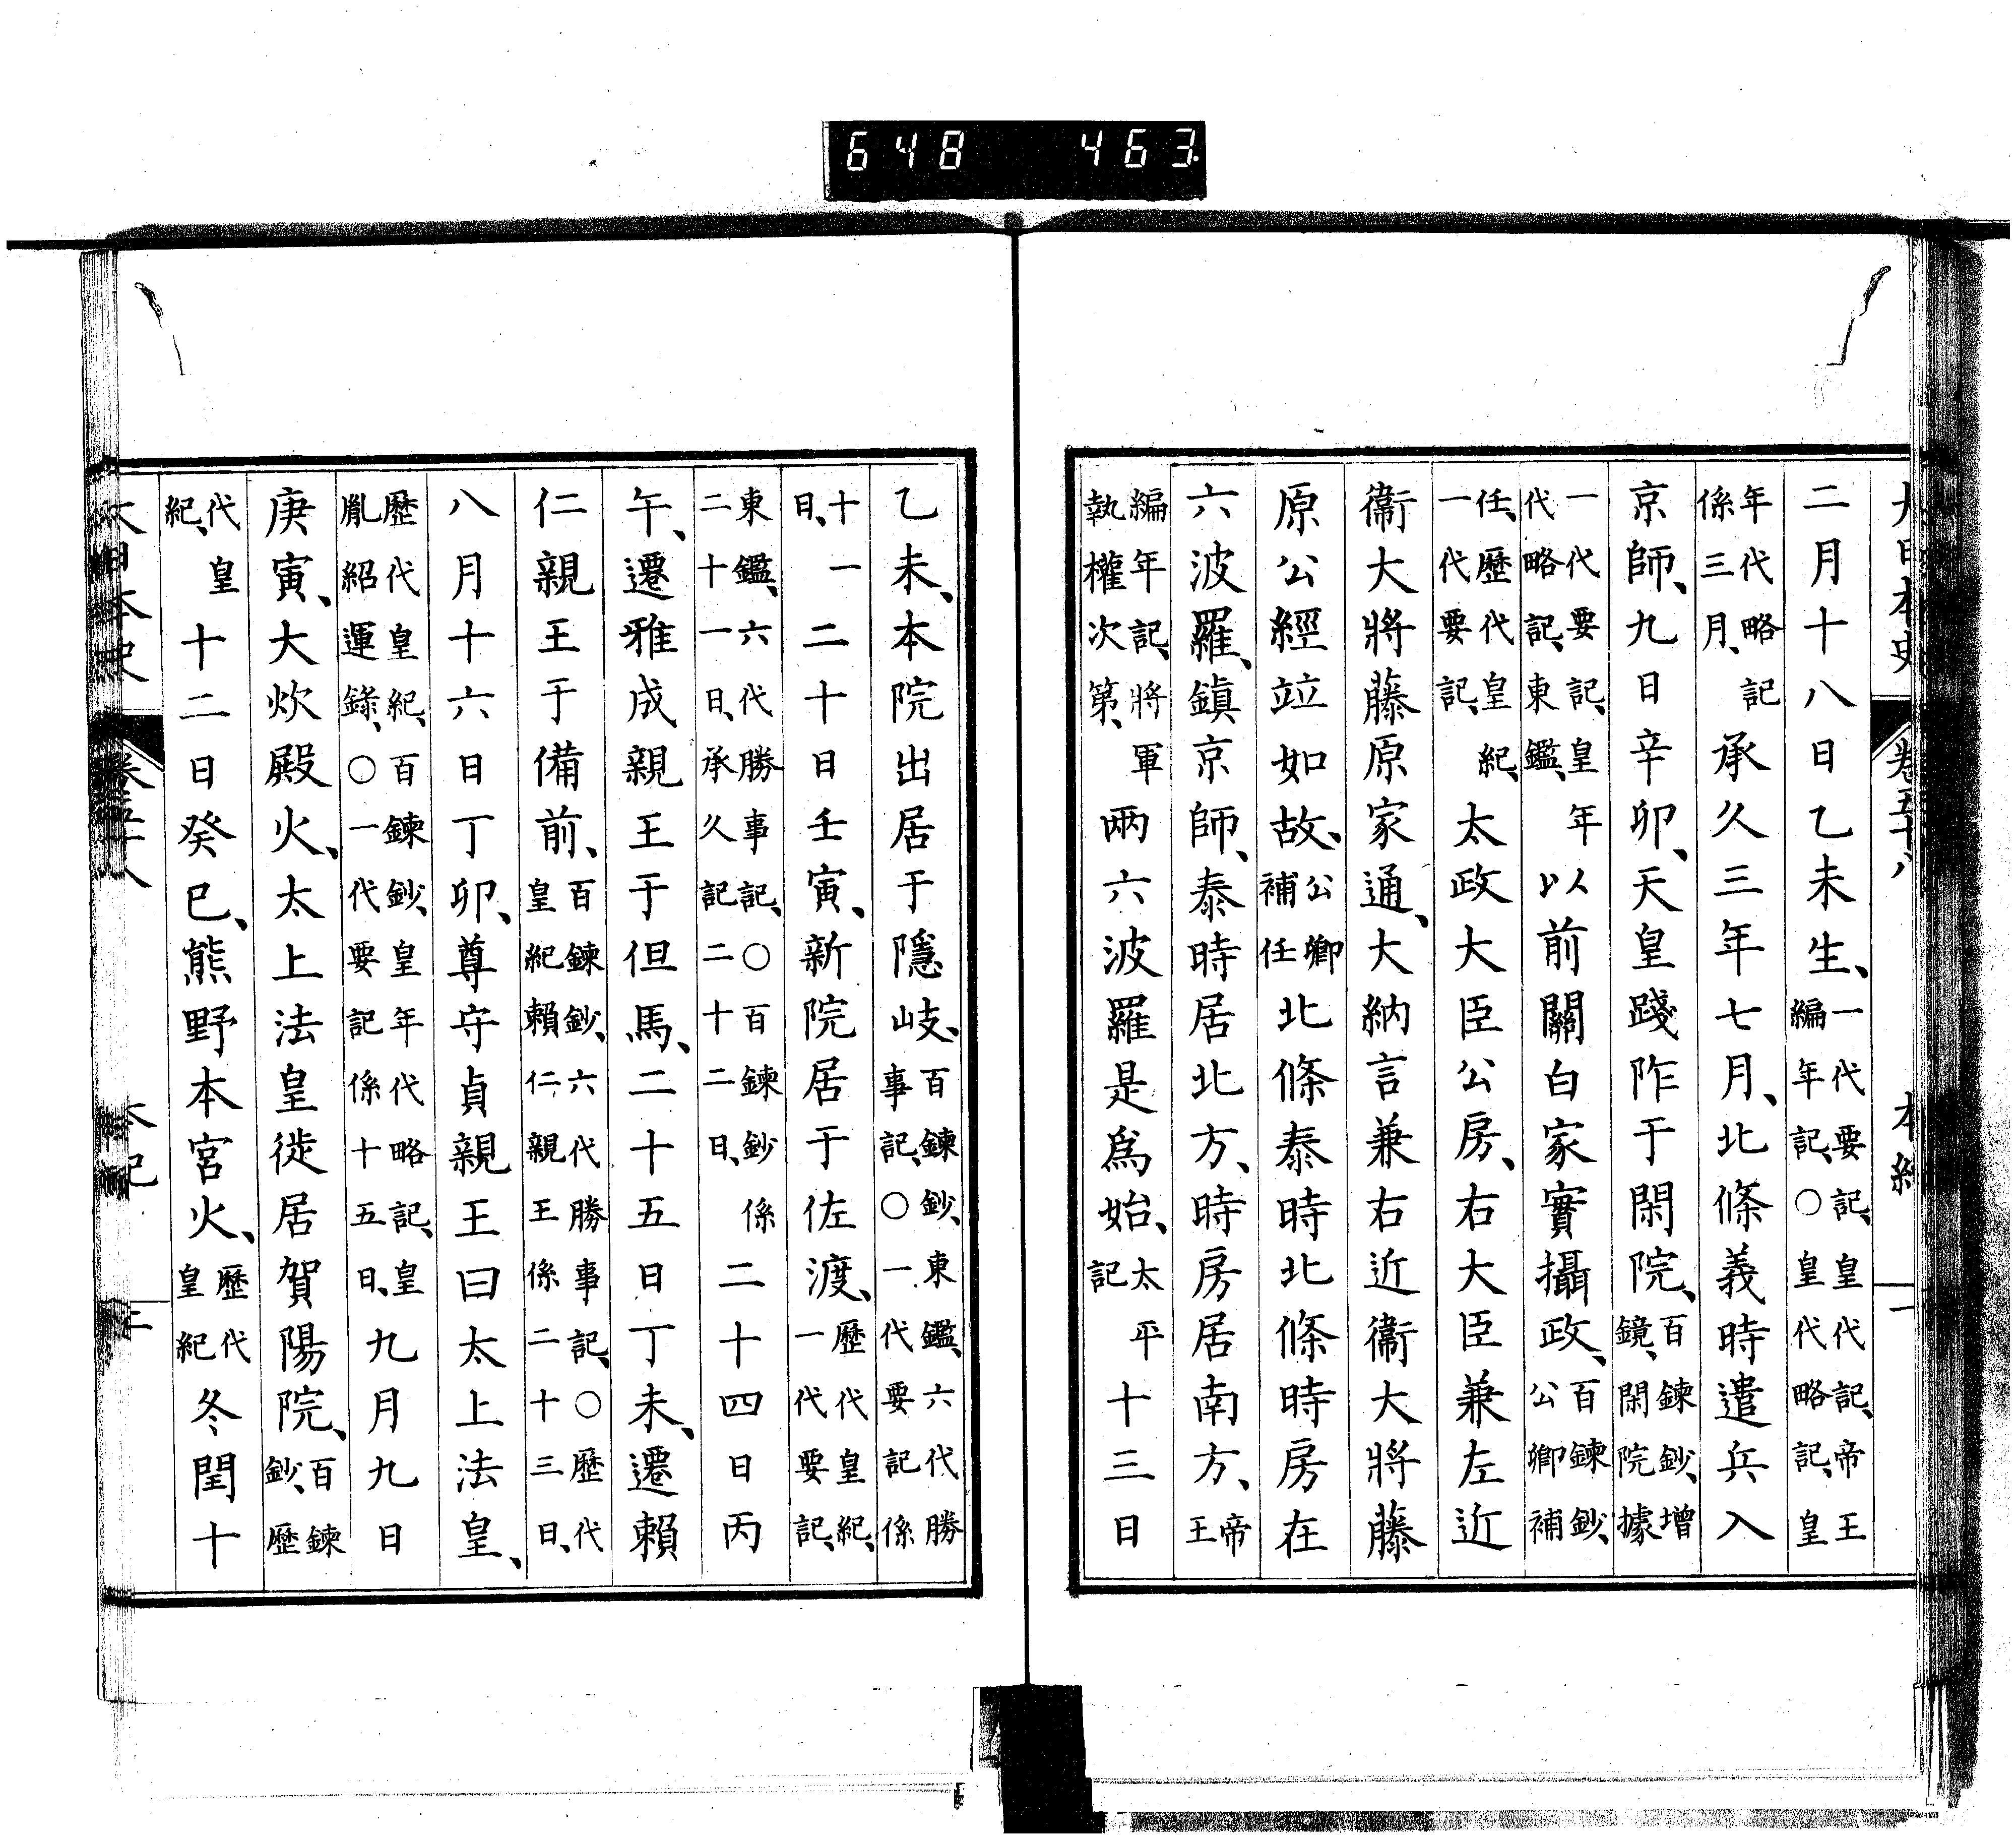 648 463
大日本史 卷五十八 本紀 一
二月十八日乙未生、一代要記、皇代記、帝王編年記、○皇代略記、皇
年代略記係三月、承久三年七月、北條義時遣兵入
京師、九日辛卯、天皇踐阼于閑院、百鍊鈔、增鏡、閑院據
一代要記、皇年代略記、東鑑、以前關白家實攝政、百鍊鈔、公卿補
任、歷代皇紀、一代要記、太政大臣公房、右大臣兼左近
衞大將藤原家通、大納言兼右近衞大將藤
原公經竝如故、公卿補任北條泰時北條時房在
六波羅、鎮京師、泰時居北方、時房居南方、帝王
編年記、將軍執權次第、兩六波羅是爲始、太平記十三日
乙未、本院出居于隱岐、百鍊鈔、東鑑、六代勝事記、○一代要記係
十一日、二十日壬寅、新院居于佐渡、歷代皇紀、一代要記、
東鑑、六代勝事記、○百鍊鈔係二十一日、承久記二十二日、二十四日丙
午、遷雅成親王于但馬、二十五日丁未、遷賴
仁親王于備前、百鍊鈔、六代勝事記、○歷代皇紀賴仁親王係二十三日、
八月十六日丁卯、尊守貞親王曰太上法皇、
歷代皇紀、百鍊鈔、皇年代略記、皇胤紹運錄、○一代要記係十五日、九月九日
庚寅、大炊殿火、太上法皇徙居賀陽院、百鍊鈔、歷
代皇紀、十二日癸巳、熊野本宮火、歷代皇紀冬閏十
大日本史 卷五十八 本紀